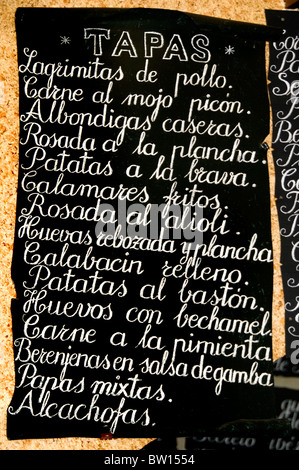 * TAPAS *
Lagrimitas de pollo.
Carne al mojo picón.
Albondigas caseras.
Rosada a la plancha.
Patatas a la brava.
Calamares fritos.
Rosada al alioli.
Huevas reborzada y plancha
Calabacin relleno.
Patatas al bastón.
Huevos con bechamel.
Carne a la pimienta
Berenjenas en salsa de gamba
Papas mixtas.
Alcachofas.
alamy
Image ID: BW1554
www.alamy.com